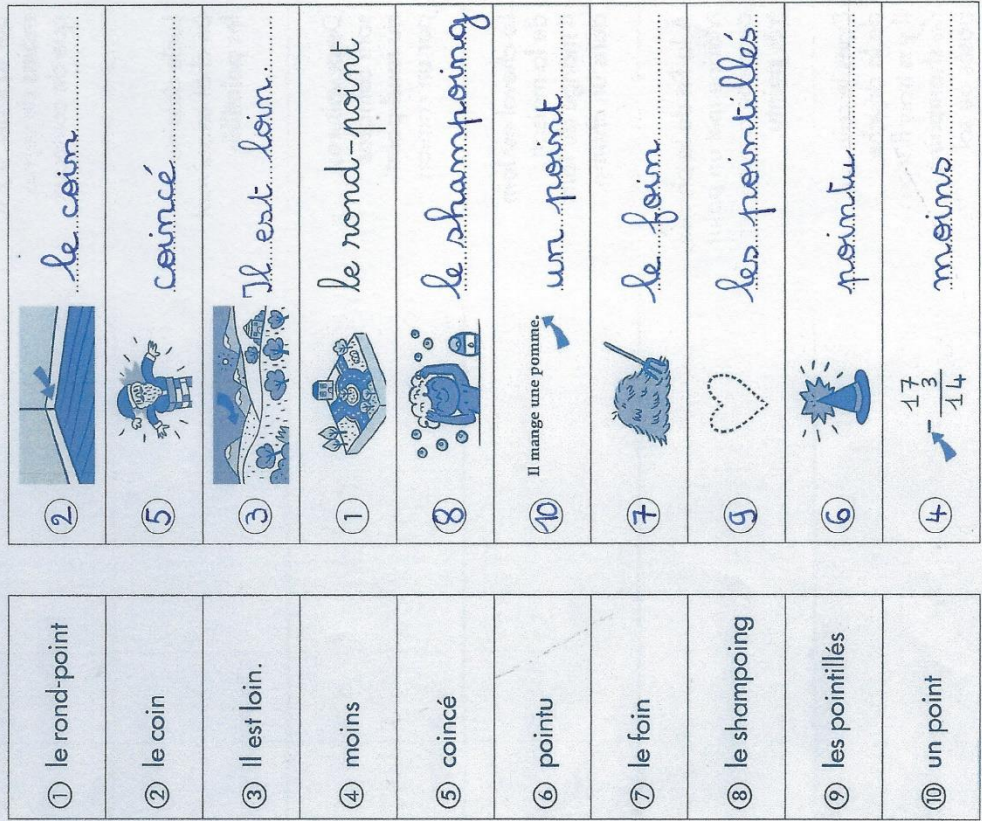 ① le rond-point
② le coin
③ Il est loin.
④ moins
⑤ coincé
⑥ pointu
⑦ le foin
⑧ le shampoing
⑨ les pointillés
⑩ un point
2 le coin
5 coincé
3 Il est loin
1 le rond-point
8 le shampoing
10 Il mange une pomme. un point
7 le foin
9 les pointilles
6 pointu
4 moins
17
- 3
14